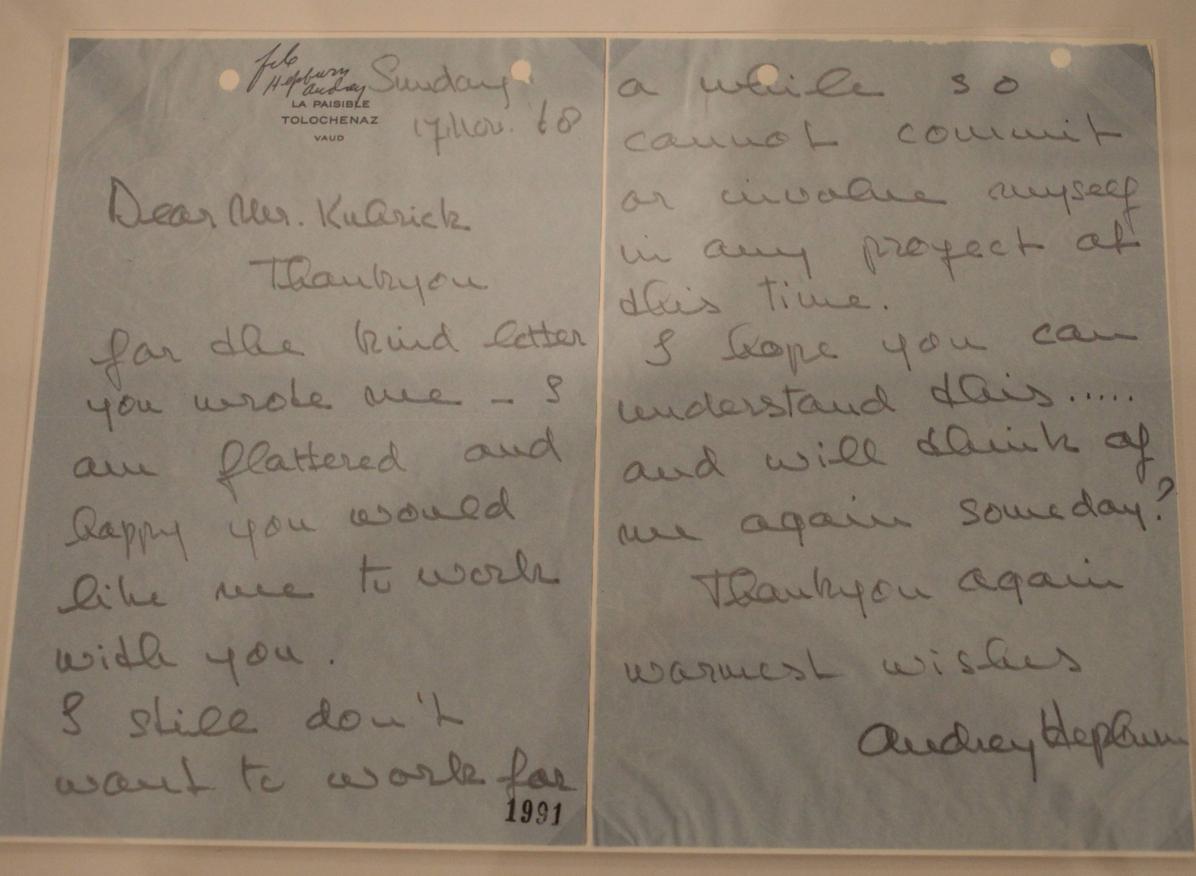 file
Hepburn
Audrey
Sunday
LA PAISIBLE
TOLOCHENAZ
VAUD
17, Nov. '68
Dear Mr. Kubrick
Thankyou
for the kind letter
you wrote me – I
am flattered and
happy you would
like me to work
with you.
I still don't
want to work for
1991
a while so
cannot commit
or involve myself
in any project at
this time.
I hope you can
understand this.....
and will think of
me again someday?
Thankyou again
warmest wishes
Audrey Hepburn